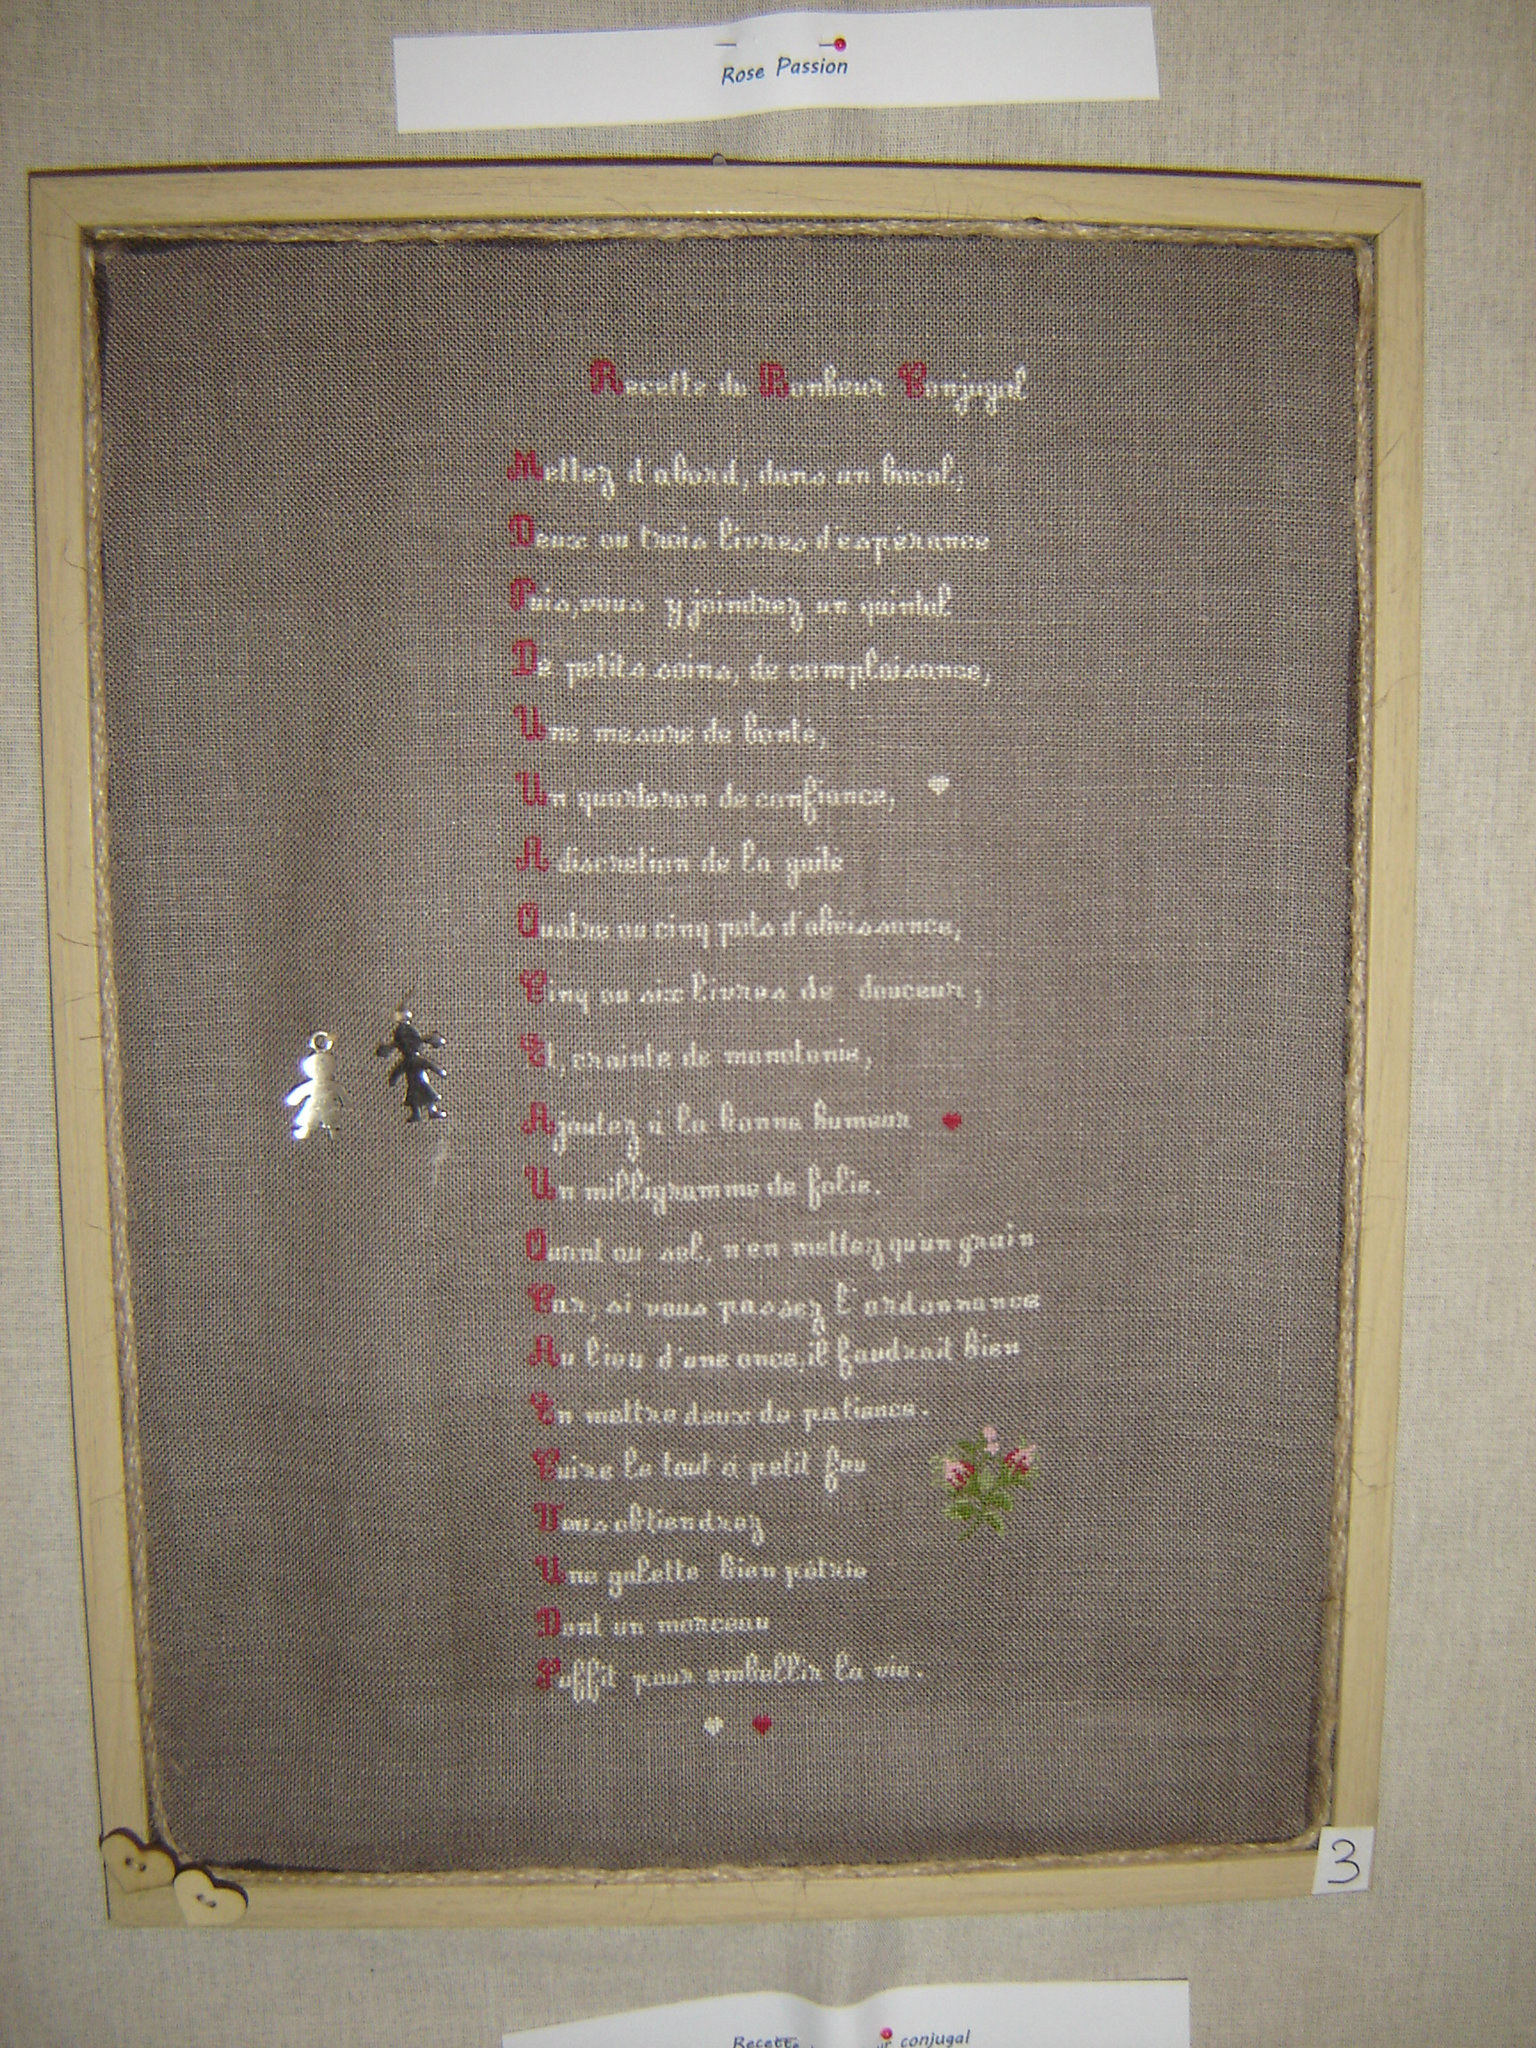 Rose Passion
Recette du Bonheur Conjugal
Mettez d'abord, dans un bocal,
Deux ou trois livres d'espérance
Puis, vous y joindrez un quintal
De petits soins, de complaisance,
Une mesure de bonté,
Un quarteron de confiance,
A discretion de la gaité
Quatre ou cinq pots d'obéissance,
Cinq ou six livres de douceur;
Et, crainte de monotonie,
Ajoutez à la bonne humeur
Un milligramme de folie.
Quant au sel, n'en mettez qu'un grain
Car, si vous passez l'ordonnance
Au lieu d'une once, il faudrait bien
En mettre deux de patience.
Cuire le tout à petit feu
Vous obtiendrez
Une galette bien pétrie
Dont un morceau
Suffit pour embellir la vie.
3
Recette conjugal